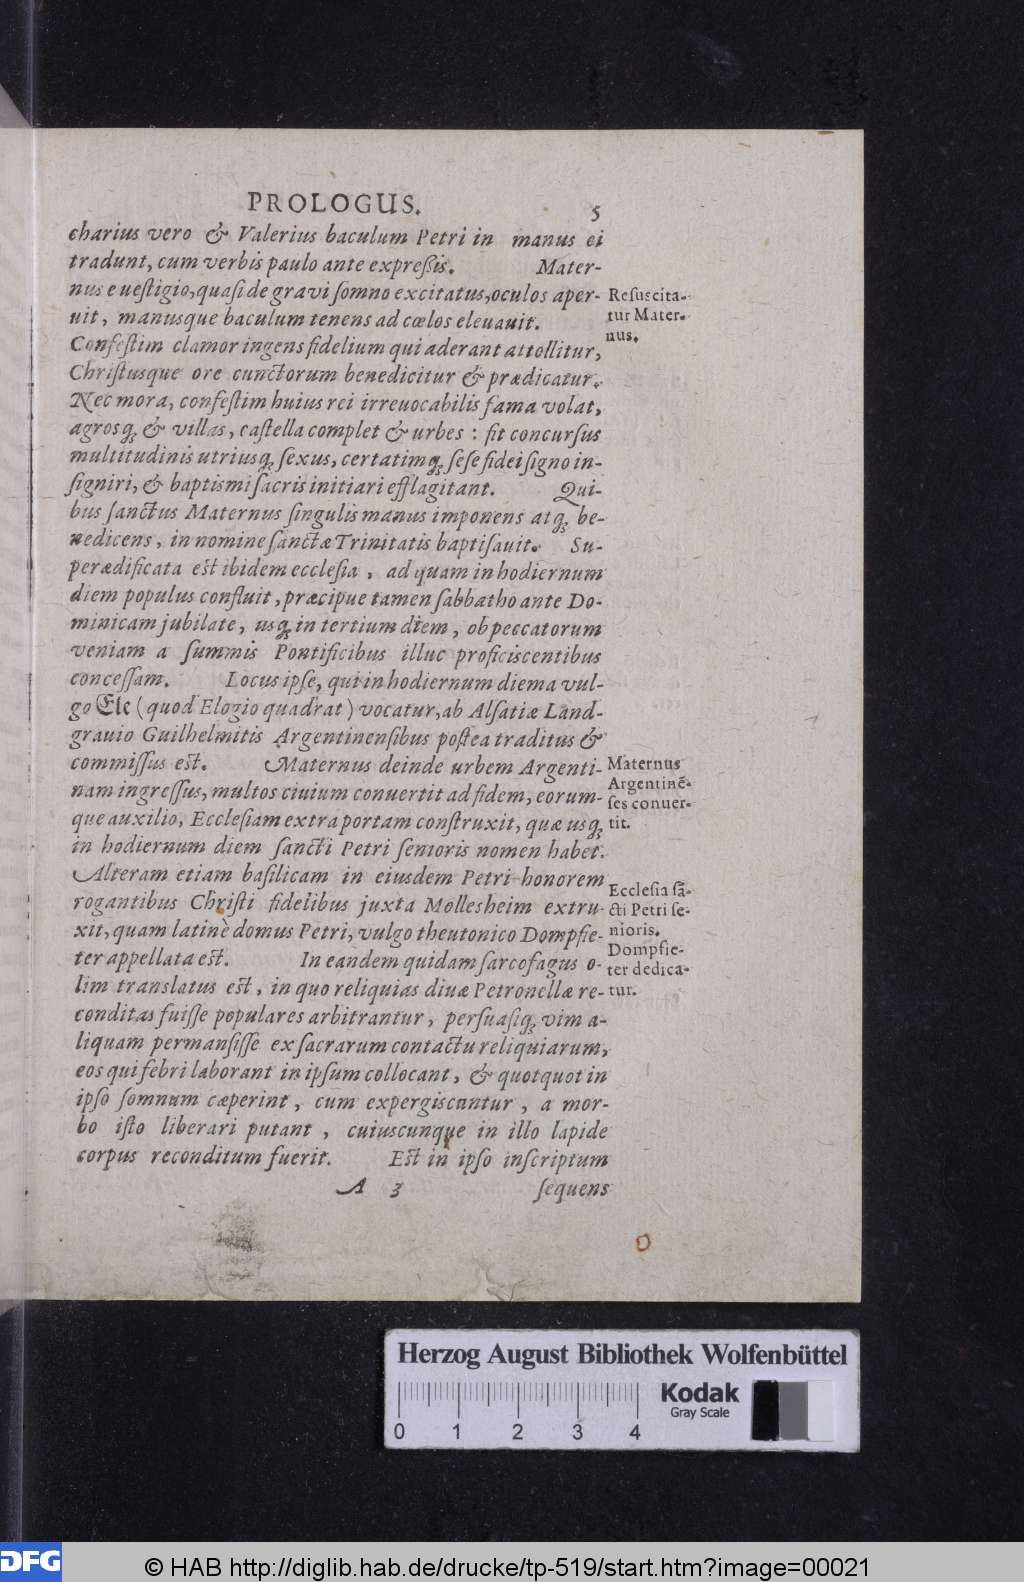 PROLOGUS. 5
charius vero & Valerius baculum Petri in manus ei
tradunt, cum verbis paulo ante expreßis. Mater-
nus e ueſtigio, quaſi de gravi ſomno excitatus, oculos aper-
uit, manusque baculum tenens ad cœlos eleuauit.
Confeſtim clamor ingens fidelium qui aderant attollitur,
Chriſtusque ore cunctorum benedicitur & prædicatur.
Nec mora, confeſtim huius rei irreuocabilis fama volat,
agrosq́; & villas, caſtella complet & urbes : fit concurſus
multitudinis utriusq́; ſexus, certatimq́; ſeſe fidei ſigno in-
ſigniri, & baptismi ſacris initiari efflagitant. Qui-
bus ſanctus Maternus ſingulis manus imponens atq́; be-
nedicens, in nomine ſanctæ Trinitatis baptiſauit. Su-
perædificata est ibidem eccleſia, ad quam in hodiernum
diem populus confluit, præcipue tamen ſabbatho ante Do-
minicam jubilate, usq́; in tertium diem, ob peccatorum
veniam a ſummis Pontificibus illuc proficiscentibus
conceſſam. Locus ipſe, qui in hodiernum diem a vul-
go Ele (quod Elogio quadrat) vocatur, ab Alſatiæ Land-
grauio Guilhelmitis Argentinenſibus poſtea traditus &
commiſſus est. Maternus deinde urbem Argenti-
nam ingreſſus, multos ciuium conuertit ad fidem, eorum-
que auxilio, Eccleſiam extra portam conſtruxit, quæ usq́;
in hodiernum diem ſancti Petri ſenioris nomen habet.
Alteram etiam baſilicam in eiusdem Petri honorem
rogantibus Chriſti fidelibus juxta Mollesheim extru-
xit, quam latinè domus Petri, vulgo theutonico Dompfie-
ter appellata est. In eandem quidam ſarcofagus o-
lim translatus est, in quo reliquias diuæ Petronellæ re-
conditas fuiſſe populares arbitrantur, perſuaſiq́; vim a-
liquam permanſiſſe ex ſacrarum contactu reliquiarum,
eos qui febri laborant in ipſum collocant, & quotquot in
ipſo ſomnum cæperint, cum expergiscuntur, a mor-
bo iſto liberari putant, cuiuscunque in illo lapide
corpus reconditum fuerit. Est in ipſo inſcriptum
A 3 ſequens
Reſuscita-
tur Mater-
nus.
Maternus
Argentinē-
ſes conuer-
tit.
Eccleſia ſā-
cti Petri ſe-
nioris.
Dompfie-
ter dedica-
tur.
Herzog August Bibliothek Wolfenbüttel
0 1 2 3 4
Kodak
Gray Scale
DFG
© HAB http://diglib.hab.de/drucke/tp-519/start.htm?image=00021